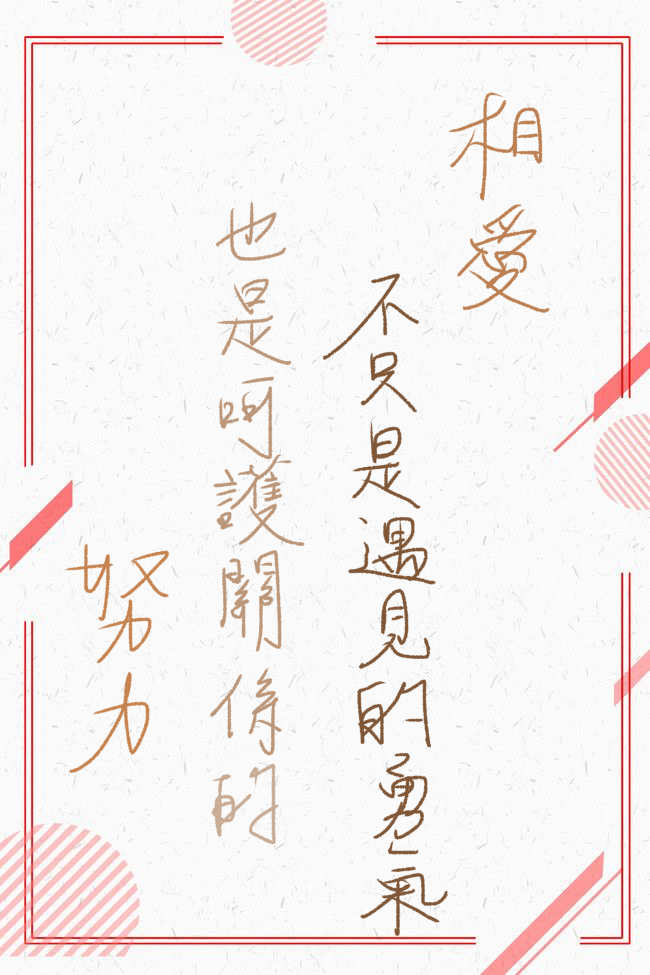 相愛
不只是遇見的勇氣
也是呵護關係的
努力